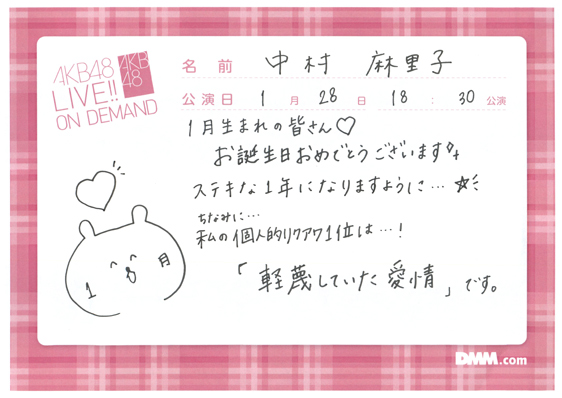 AKB48
LIVE!!
ON DEMAND
AKB
48
名前 中村 麻里子
公演日 1月28日 18:30公演
1月生まれの皆さん♡
お誕生日おめでとうございます
ステキな1年になりますように…☆
ちなみに…
私の個人的リクアワ1位は…!
「軽蔑していた愛情」です。
1 月
DMM.com